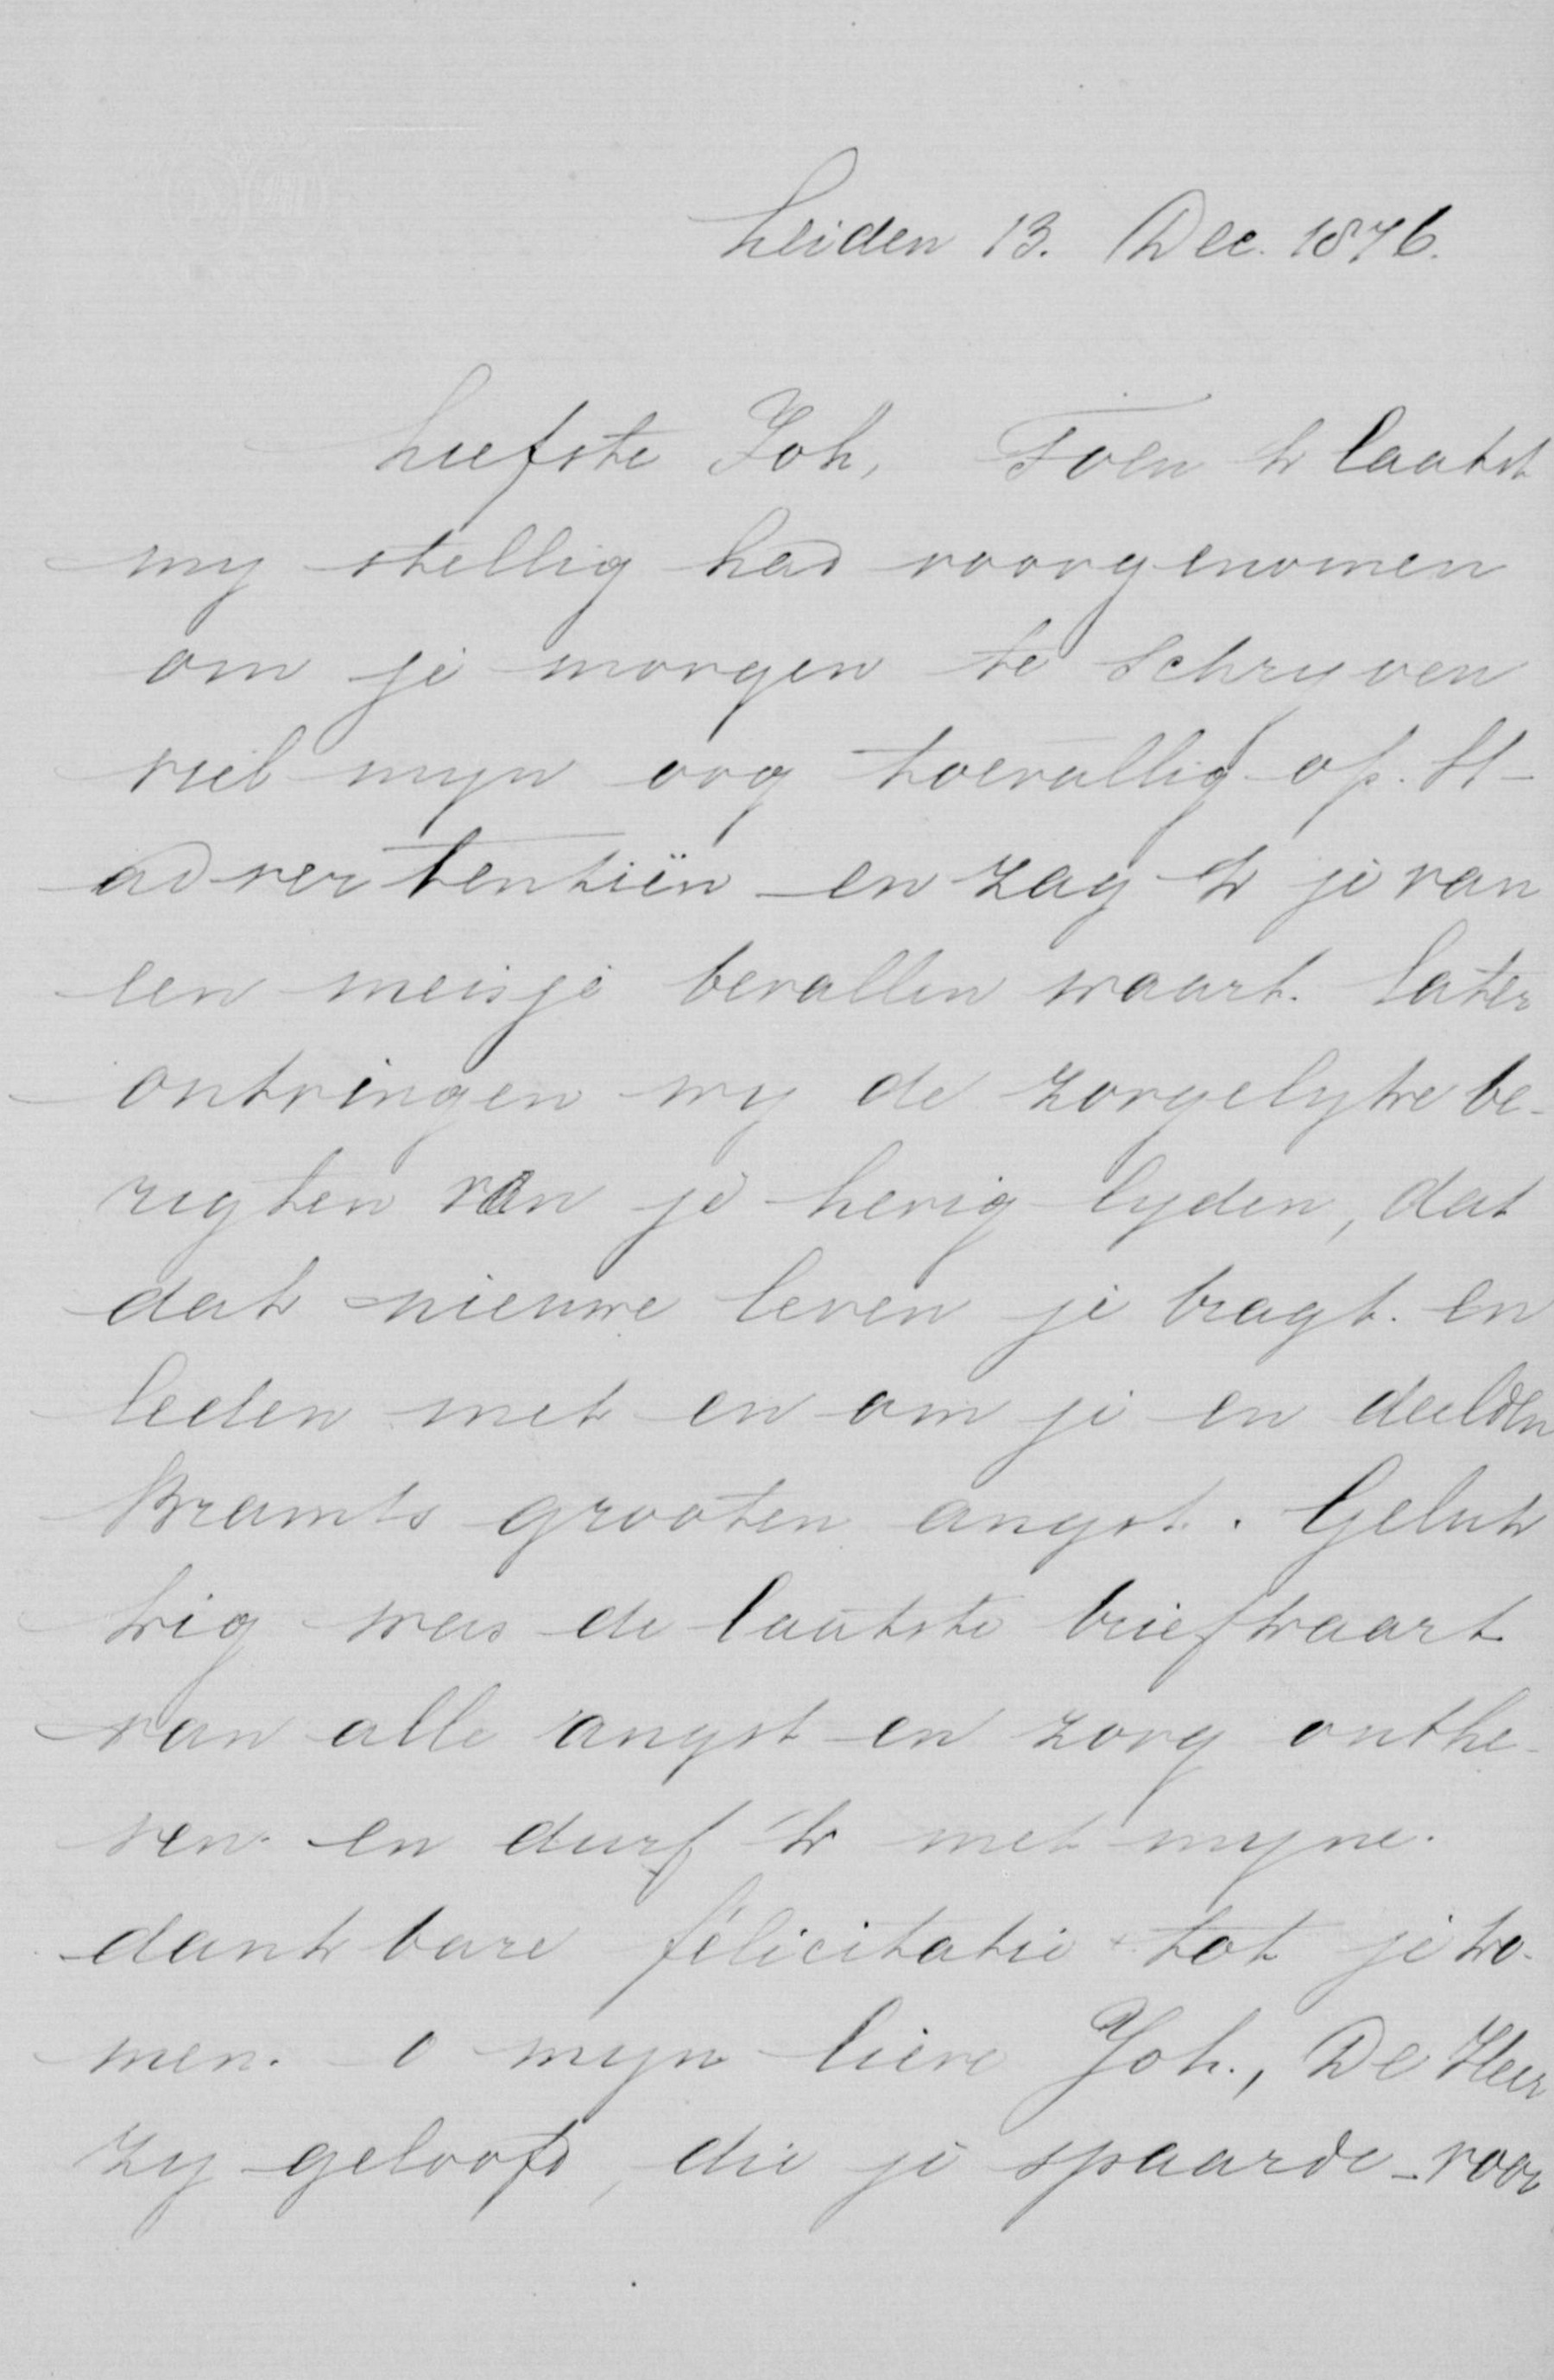 Leiden 13. Dec. 1876.
Liefste Joh, Toen k laatst
my stellig had voorgenomen
om je morgen te schryven
viel myn oog toevallig op. H-
advertentiën en zag k je van
een meisje bevallen waart. Later
ontvingen wy de zorgelyke be-
rigten van je hevig lyden, dat
dat nieuwe leven je bragt. en
leden met en om je en deelden
Bramts grooten angst. Geluk
kig was de laatste briefkaart
van alle angst en zorg onthe-
ven. en durf 'k met myne.
dankbare félicitatie tot je ko-
men. O myn lieve Joh., De Heer
zy geloofd, die je spaarde voor